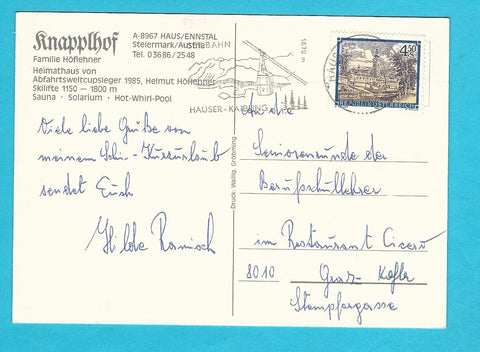 Knapplhof
A-8967 HAUS/ENNSTAL
Steiermark/Austria
Tel. 03686/2548
Familie Höflehner
Heimathaus von
Abfahrtsweltcupsieger 1985, Helmut Höflehner
Skilifte 1150 — 1800 m
Sauna · Solarium · Hot-Whirl-Pool
SEILBAHN
1870 m
HAUSER-KAIBLING
HAUS
4.50
REPUBLIK ÖSTERREICH
Druck: Wallig, Gröbming
Viele liebe Grüße von
meinem Schi-Kurzurlaub
sendet Euch
Hilde Ramisch
An die
Seniorenrunde der
Berufsschullehrer
im Restaurant Cicero
8010 Graz
Stempfergasse